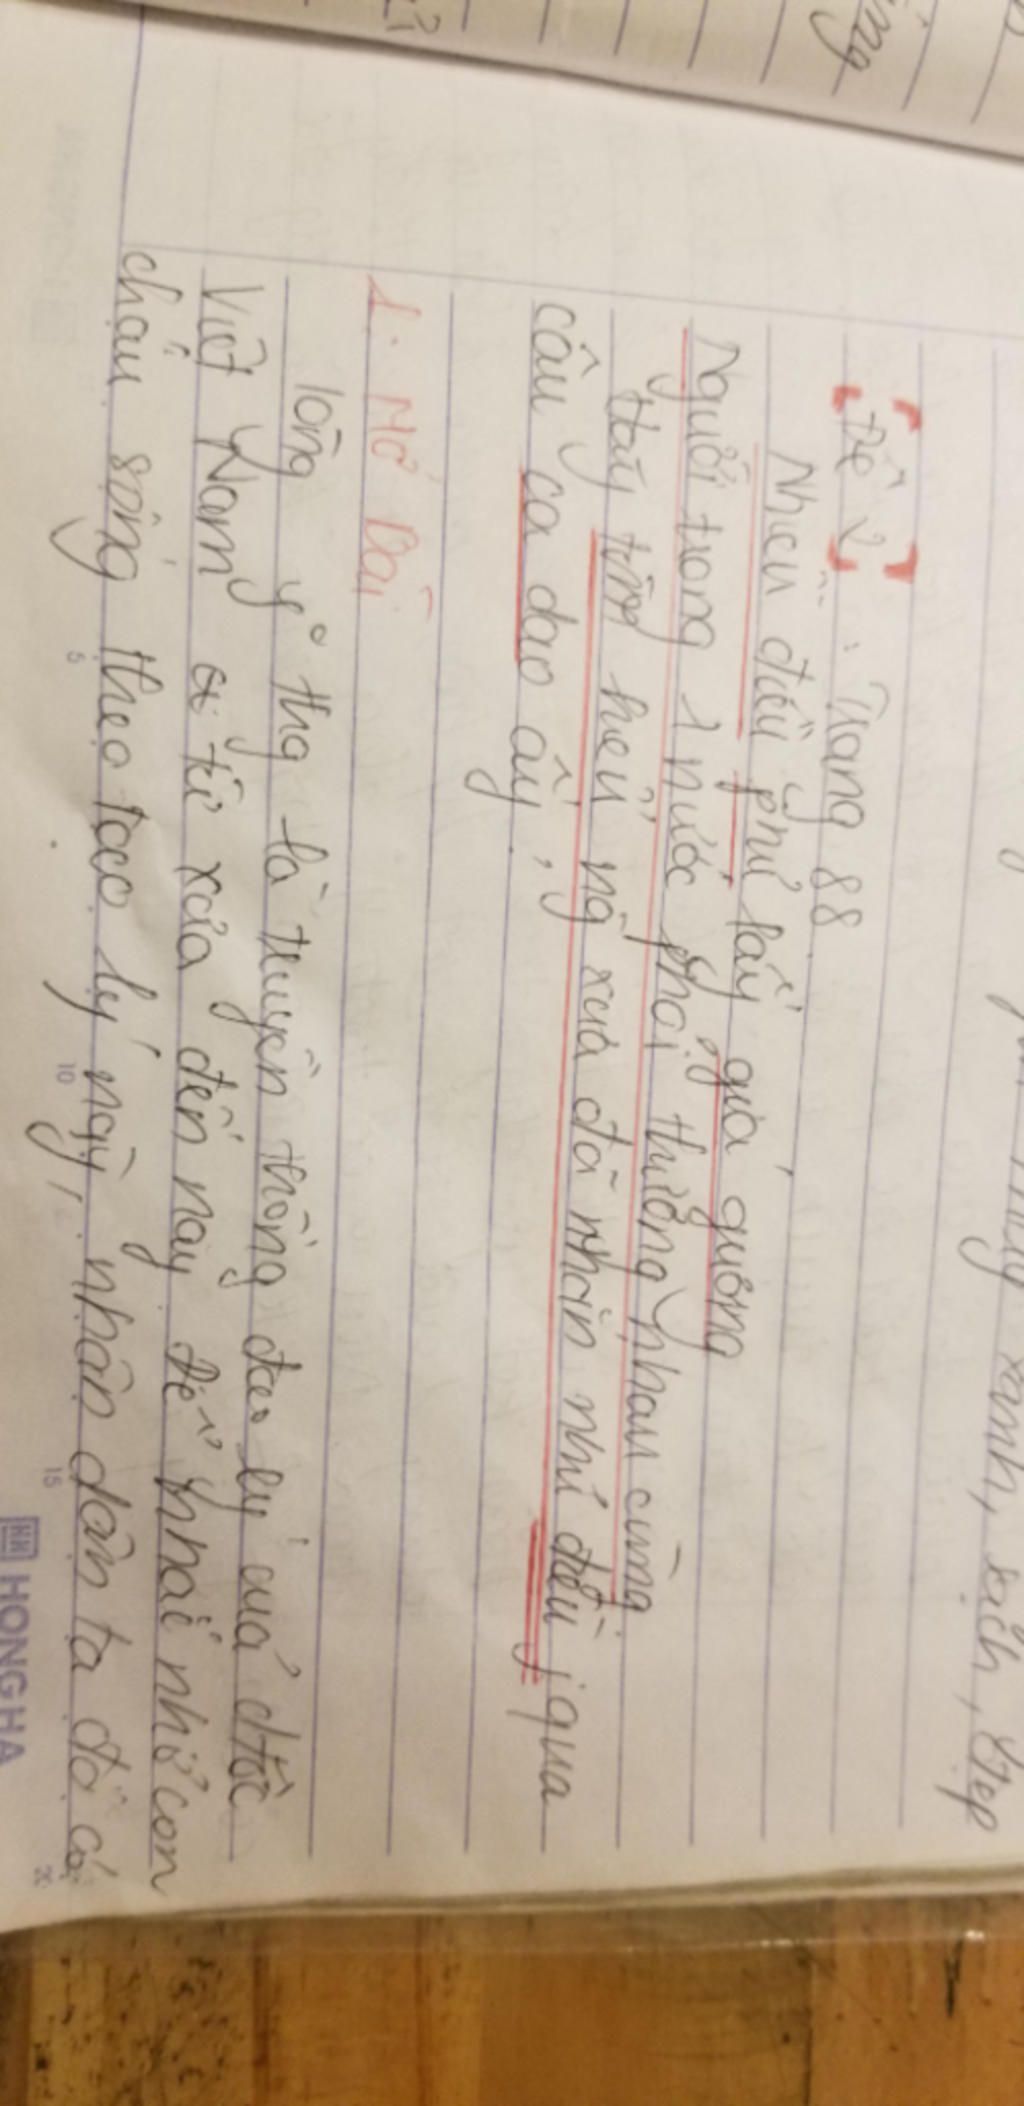 mình xanh, sạch, đẹp
Đề 2: Trang 88
Nhiễu điều phủ lấy giá gương
Người trong 1 nước phải thương nhau cùng
Hãy tìm hiểu ng xưa đã nhắn nhủ điều j qua
câu ca dao ấy.
1. Mở Bài
lòng y thg là truyền thống đạo lý của dtộc
Việt Nam từ xưa đến nay. Để khai nhở con
cháu sống theo đạo lý này, nhân dân ta đã có
5
10
15
20
HONG HA